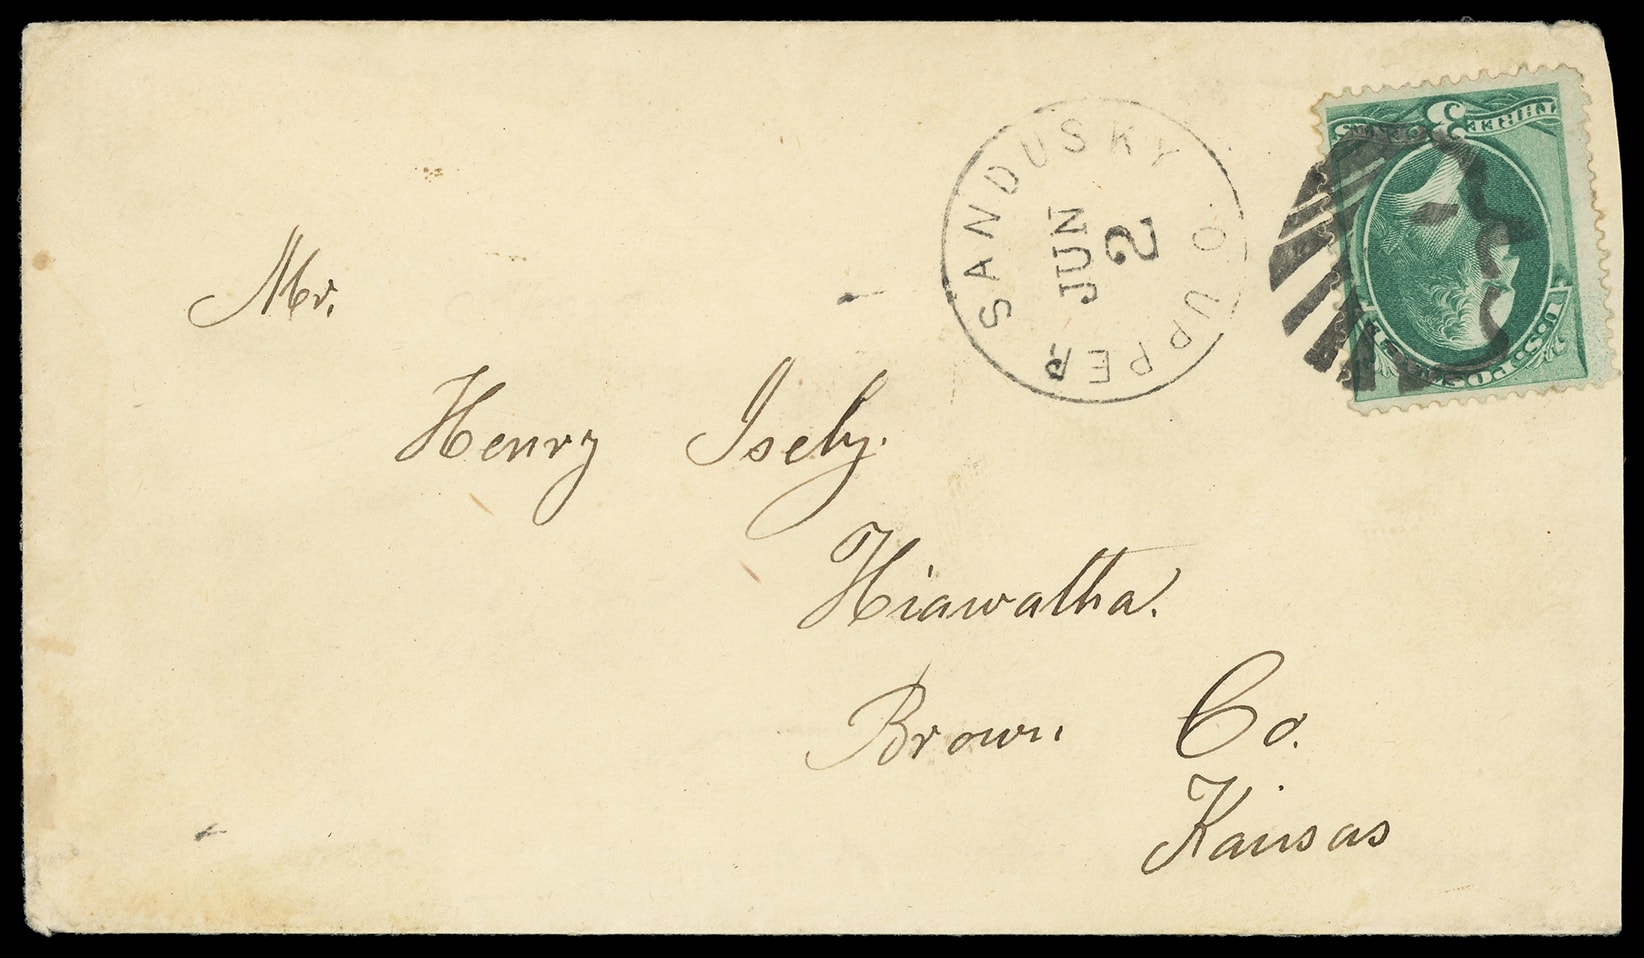 UPPER SANDUSKY O.
JUN
2
THREE 3 CENTS
U.S. POSTAGE
Mr.
Henry Isely.
Hiawatha.
Brown Co.
Kansas